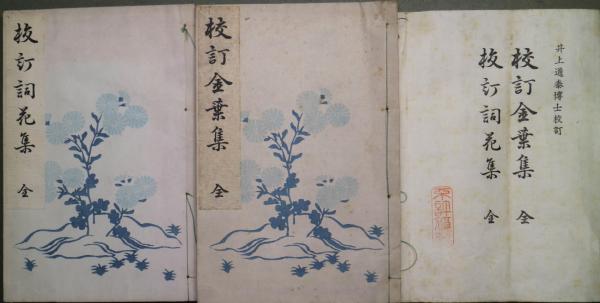 挍訂詞花集 全
校訂金葉集 全
井上通泰博士校訂
校訂金葉集 全
挍訂詞花集 全